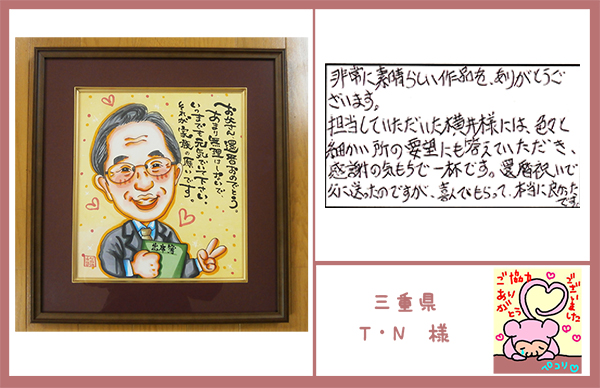 お父さん還暦おめでとう。
あまり無理はしないで
いつまでも元気でいて下さい。
それが家族の願いです。
出席簿
非常に素晴らしい作品を、ありがとうご
ざいます。
担当していただいた横井様には、色々と
細かい所の要望にも答えていただき、
感謝の気もちで一杯です。還暦祝いで
父に送ったのですが、喜んでもらって、本当に良かった
です。
三重県
T・N 様
ご協力
ありがとう
ございました
ペコリ